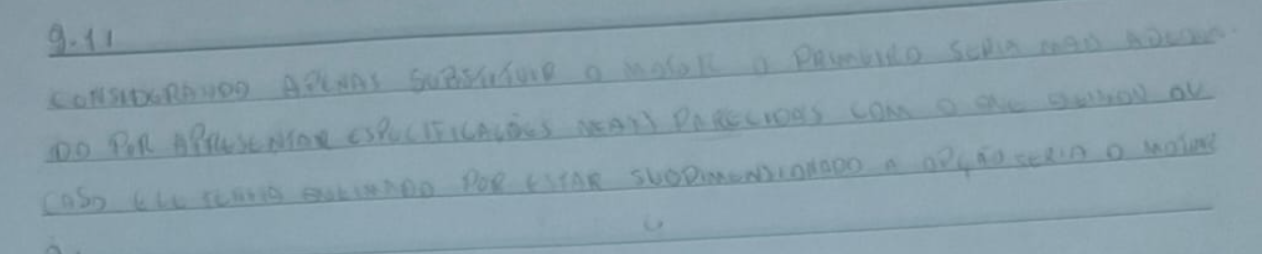 9.11
CONSIDERANDO APENAS SUBSTITUIR O MOTOR O PRIMEIRO SERIA MAIS ADEQUA-
DO POR APRESENTAR ESPECIFICAÇÕES MAIS PARECIDAS COM O QUE QUEIMOU OU
CASO ELE TENHA QUEIMADO POR ESTAR SUBDIMENSIONADO A OPÇÃO SERIA O